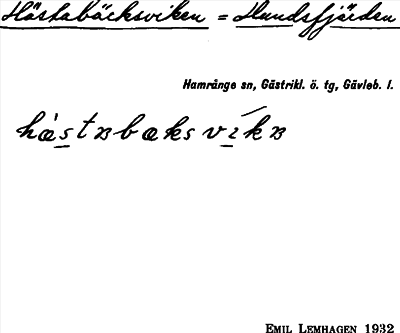 Hästabäcksviken = Hundsfjärden
Hamrånge sn, Gästrikl. ö. tg, Gävleb. l.
hæ̀stʙbæksvíkʙ
EMIL LEMHAGEN 1932